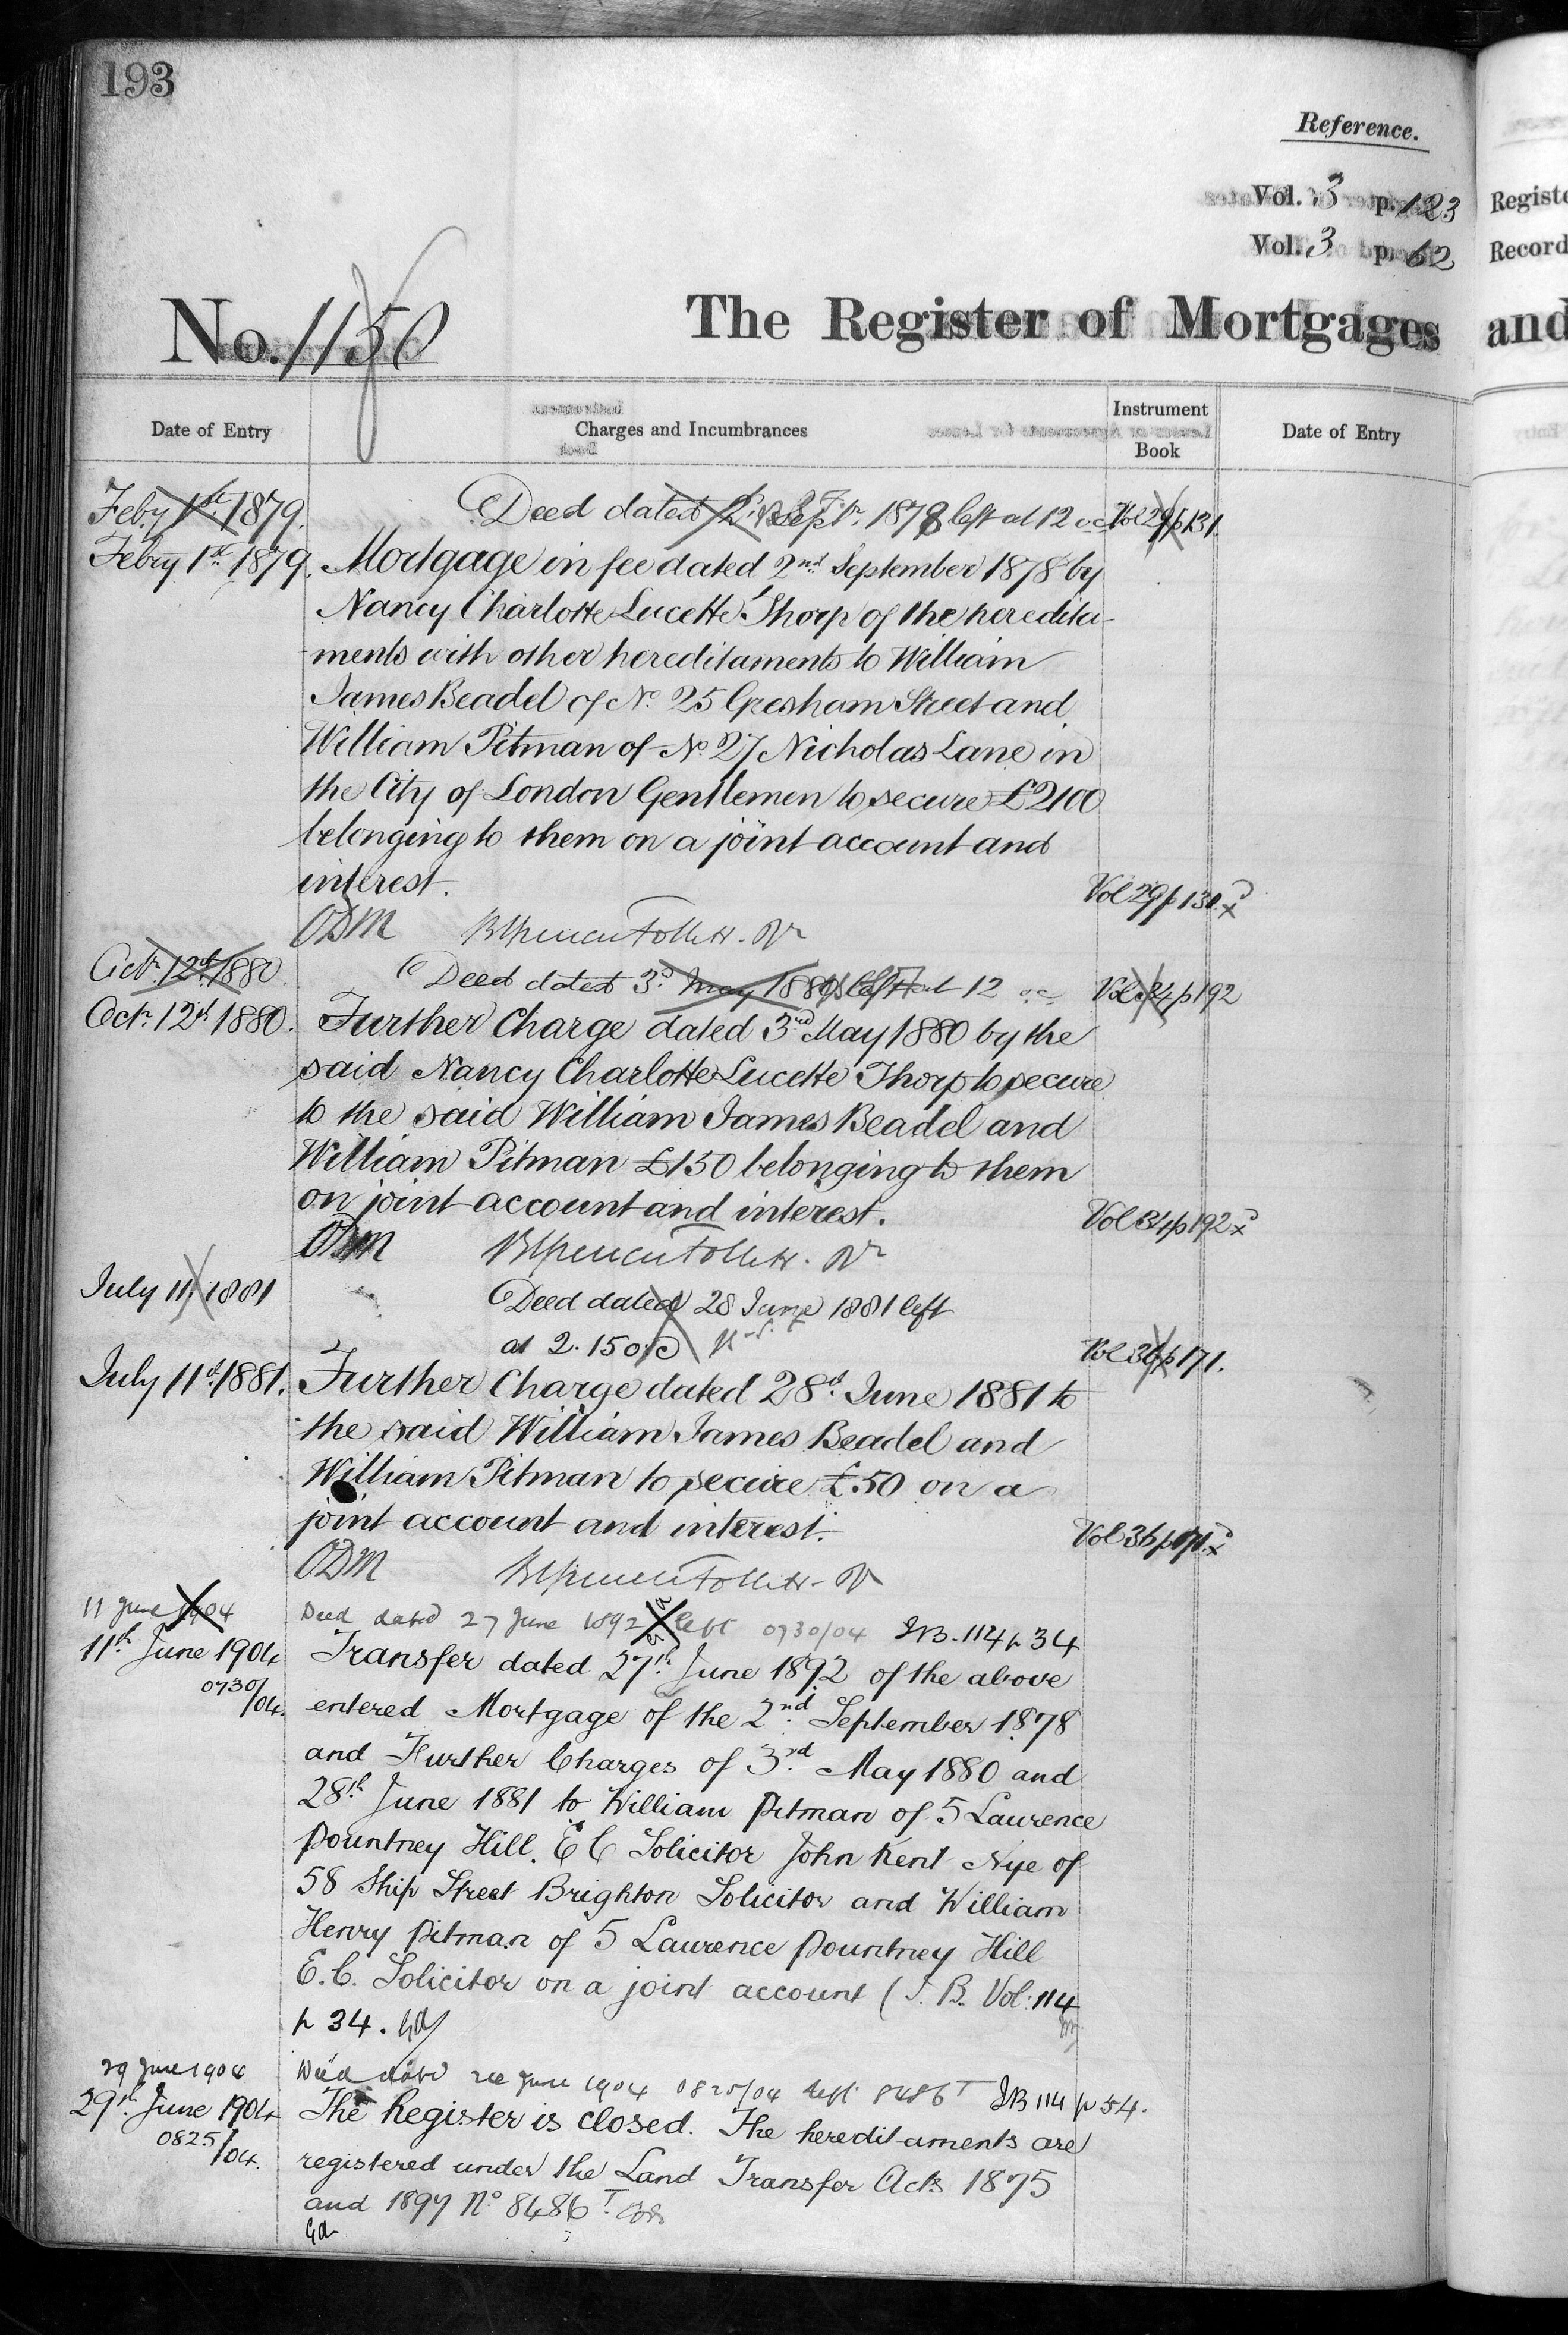 193
Reference.
Vol. 3 p. 123
Vol. 3 p. 62
Registe
Record
No. 1150
The Register of Mortgages
and
Date of Entry
Charges and Incumbrances
Instrument
Book
Date of Entry
Feby 1st 1879. Deed dated 2d Septr. 1878 left at 12 oc Vol 29 p 131.
Febry 1st 1879. Mortgage in fee dated 2nd September 1878 by
Nancy Charlotte Lucette Thorp of the heredita-
-ments with other hereditaments to William
James Beadel of No. 25 Gresham Street and
William Pitman of No. 27 Nicholas Lane in
the City of London Gentlemen to secure £2100
belonging to them on a joint account and
interest.
Vol 29 p 131 x
ODM
Octr. 12th 1880 Deed dated 3d May 1880 left at 12 oc Vol 34 p 192
Octr. 12th 1880. Further Charge dated 3rd May 1880 by the
said Nancy Charlotte Lucette Thorp to secure
to the said William James Beadel and
William Pitman £150 belonging to them
on joint account and interest.
Vol 34 p 192 x
ODM
July 11 1881 Deed dated 28 June 1881 left
at 2.15 oc Vol 36 p 171.
July 11th 1881. Further Charge dated 28th June 1881 to
the said William James Beadel and
William Pitman to secure £50 on a
joint account and interest.
Vol 36 p 171 x
ODM
11 June 1904 Deed dated 27 June 1892 left 0730/04 I.B. 114 p 34
11th June 1904 Transfer dated 27th June 1892 of the above
0730/04. entered Mortgage of the 2nd September 1878
and Further Charges of 3rd May 1880 and
28th June 1881 to William Pitman of 5 Laurence
Pountney Hill. E C Solicitor John Kent Nye of
58 Ship Street Brighton Solicitor and William
Henry Pitman of 5 Laurence Pountney Hill
E.C. Solicitor on a joint account (I. B. Vol. 114
p 34.
29 June 1904 0825/04 left 8486 T IB 114 p 54.
29th June 1904 The Register is closed. The hereditaments are
0825/04. registered under the Land Transfer Acts 1875
and 1897 No 8486 T